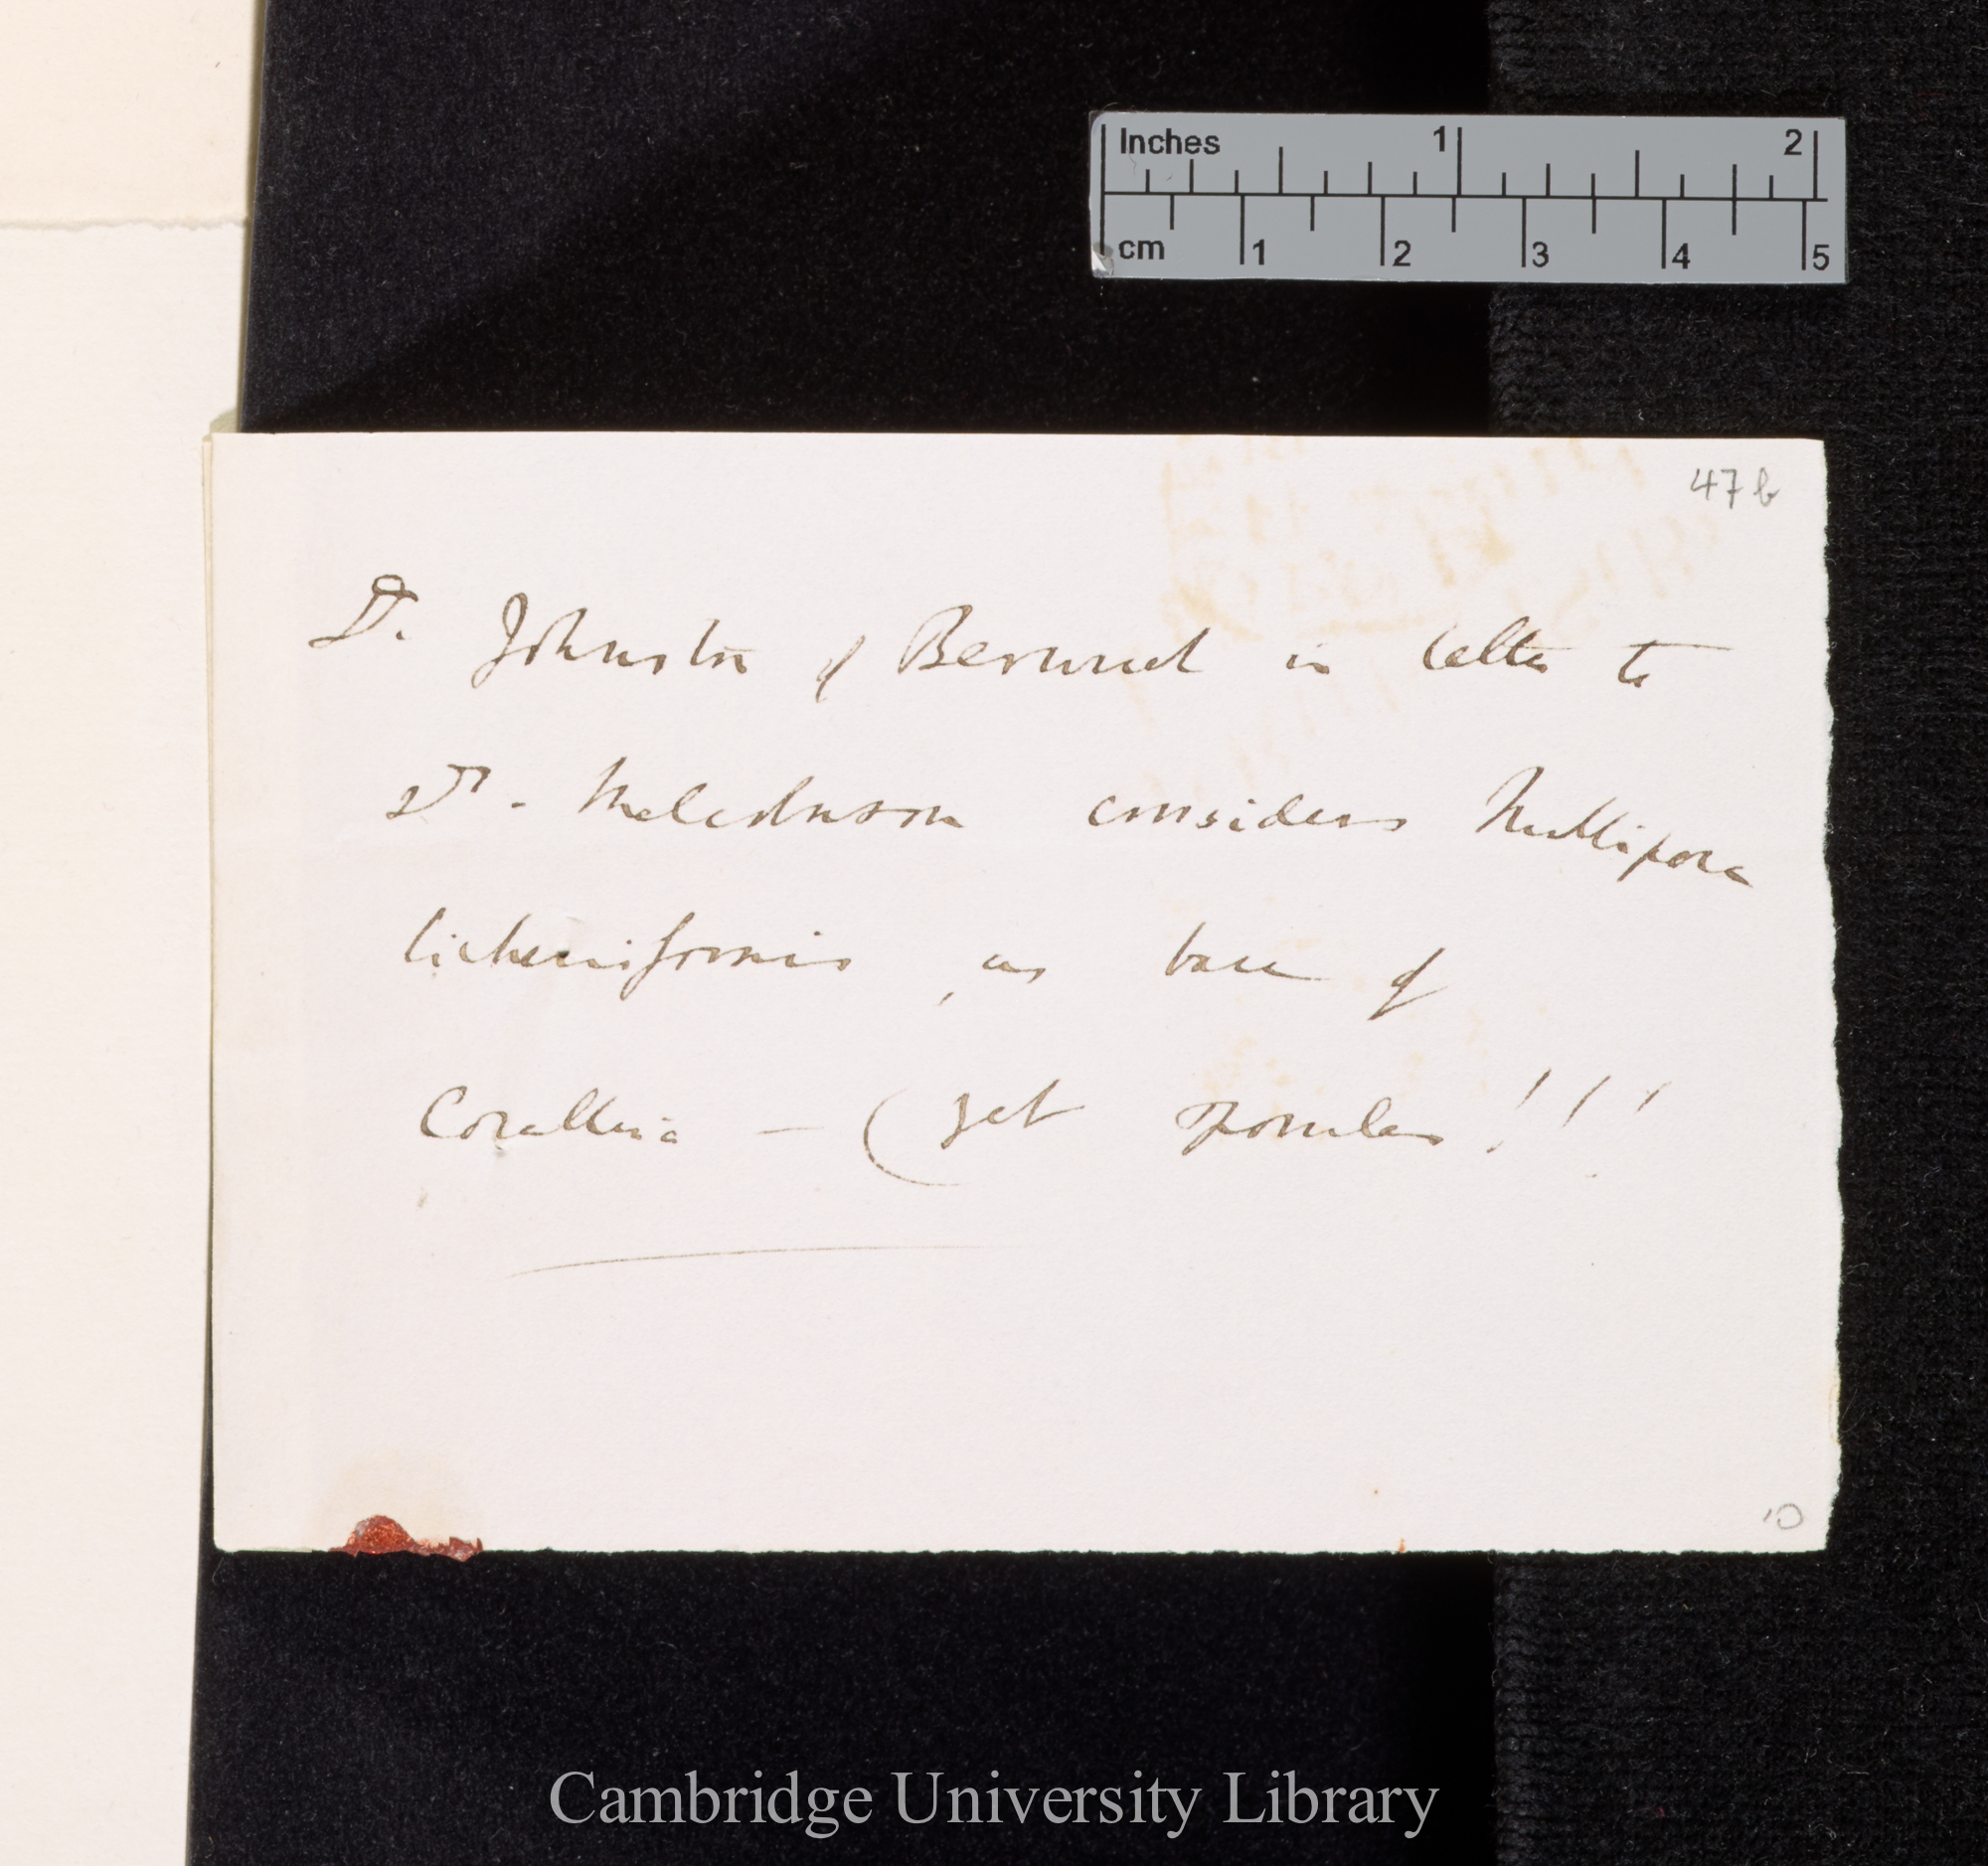 Inches 1 2
cm 1 2 3 4 5
47 b
Dr. Johnston of Berwick in letter to
Dr. Malcolmson considers Nullipora
licheniformis, as base of
Corallina — (yet sporules!!!
10
Cambridge University Library